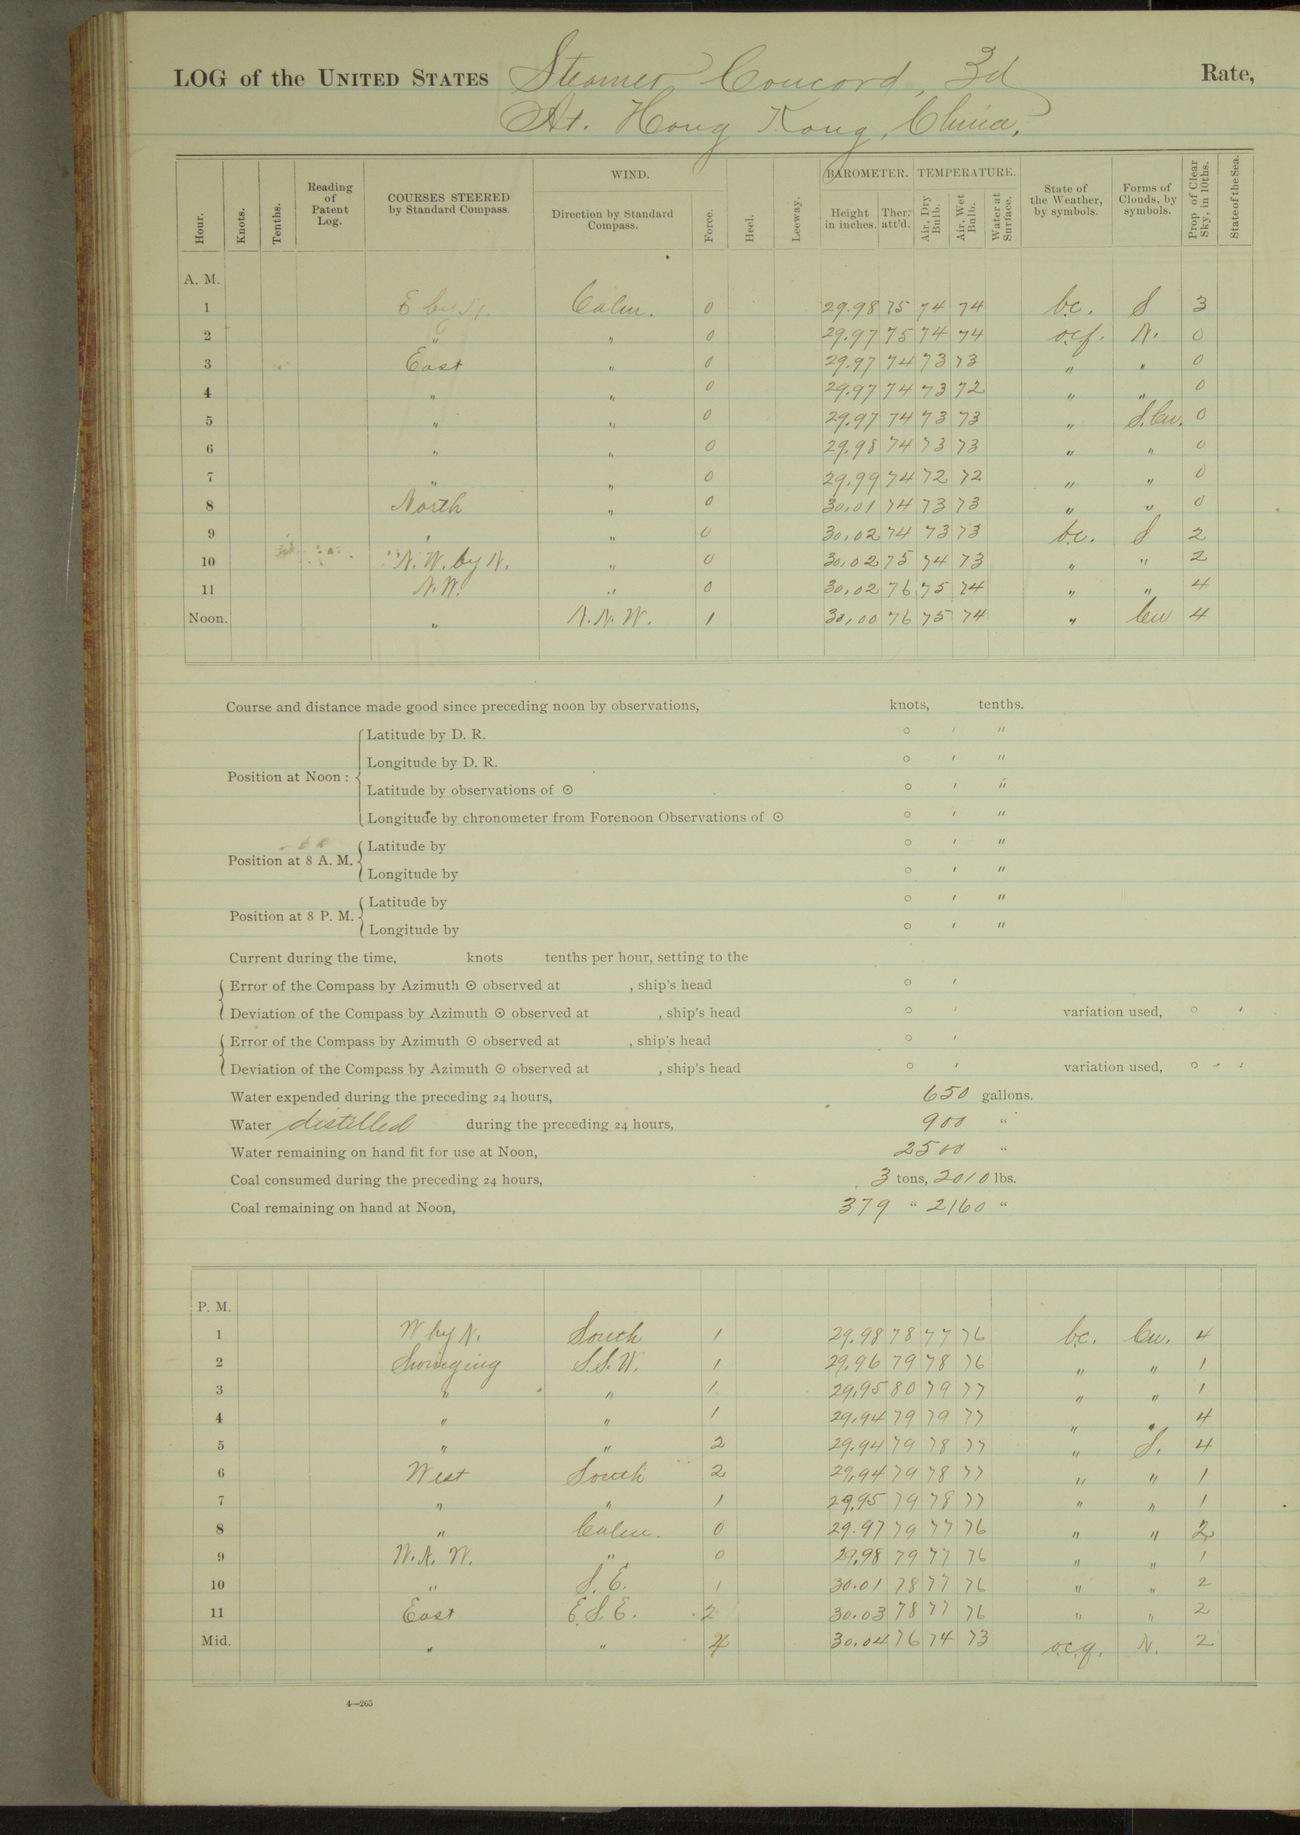 LOG of the UNITED STATES Steamer Concord, 3d Rate,
At. Hong Kong, China,
Hour. Knots. Tenths. Reading of Patent Log. COURSES STEERED by Standard Compass. WIND. Direction by Standard Compass. Force. Heel. Leeway. BAROMETER. Height in inches. Ther: att'd. TEMPERATURE. Air, Dry Bulb. Air, Wet Bulb. Water at Surface. State of the Weather, by symbols. Forms of Clouds, by symbols. Prop of Clear Sky, in 10ths. State of the Sea.
A. M.
1 E by N. Calm. 0 29.98 75 74 74 b.c. S 3
2 " " 0 29.97 75 74 74 o.c.f. N. 0
3 East " 0 29.97 74 73 73 " " 0
4 " " 0 29.97 74 73 72 " " 0
5 " " 0 29.97 74 73 73 " S.Cu. 0
6 " " 0 29.98 74 73 73 " " 0
7 " " 0 29.99 74 72 72 " " 0
8 North " 0 30.01 74 73 73 " " 0
9 " " 0 30.02 74 73 73 b.c. S 2
10 N.W. by N. " 0 30.02 75 74 73 " " 2
11 N.W. " 0 30.02 76 75 74 " " 4
Noon. " N.N.W. 1 30.00 76 75 74 " Cu 4
Course and distance made good since preceding noon by observations, knots, tenths.
Position at Noon :
Latitude by D. R. ° ' "
Longitude by D. R. ° ' "
Latitude by observations of ☉ ° ' "
Longitude by chronometer from Forenoon Observations of ☉ ° ' "
Position at 8 A. M.
Latitude by ° ' "
Longitude by ° ' "
Position at 8 P. M.
Latitude by ° ' "
Longitude by ° ' "
Current during the time, knots tenths per hour, setting to the
Error of the Compass by Azimuth ☉ observed at , ship's head ° '
Deviation of the Compass by Azimuth ☉ observed at , ship's head ° ' variation used, ° '
Error of the Compass by Azimuth ☉ observed at , ship's head ° '
Deviation of the Compass by Azimuth ☉ observed at , ship's head ° ' variation used, ° '
Water expended during the preceding 24 hours, 650 gallons.
Water distilled during the preceding 24 hours, 900 "
Water remaining on hand fit for use at Noon, 2500 "
Coal consumed during the preceding 24 hours, 3 tons, 2010 lbs.
Coal remaining on hand at Noon, 379 " 2160 "
P. M.
1 W by N. South 1 29.98 78 77 76 b.c. Cu. 4
2 Swinging S.S.W. 1 29.96 79 78 76 " " 1
3 " " 1 29.95 80 79 77 " " 1
4 " " 1 29.94 79 79 77 " " 4
5 " " 2 29.94 79 78 77 " S. 4
6 West South 2 29.94 79 78 77 " " 1
7 " " 1 29.95 79 78 77 " " 1
8 " Calm. 0 29.97 79 77 76 " " 2
9 W.N.W. " 0 29.98 79 77 76 " " 1
10 " S.E. 1 30.01 78 77 76 " " 2
11 East E.S.E. 2 30.03 78 77 76 " " 2
Mid. " " 4 30.04 76 74 73 o.c.q. N. 2
4—265